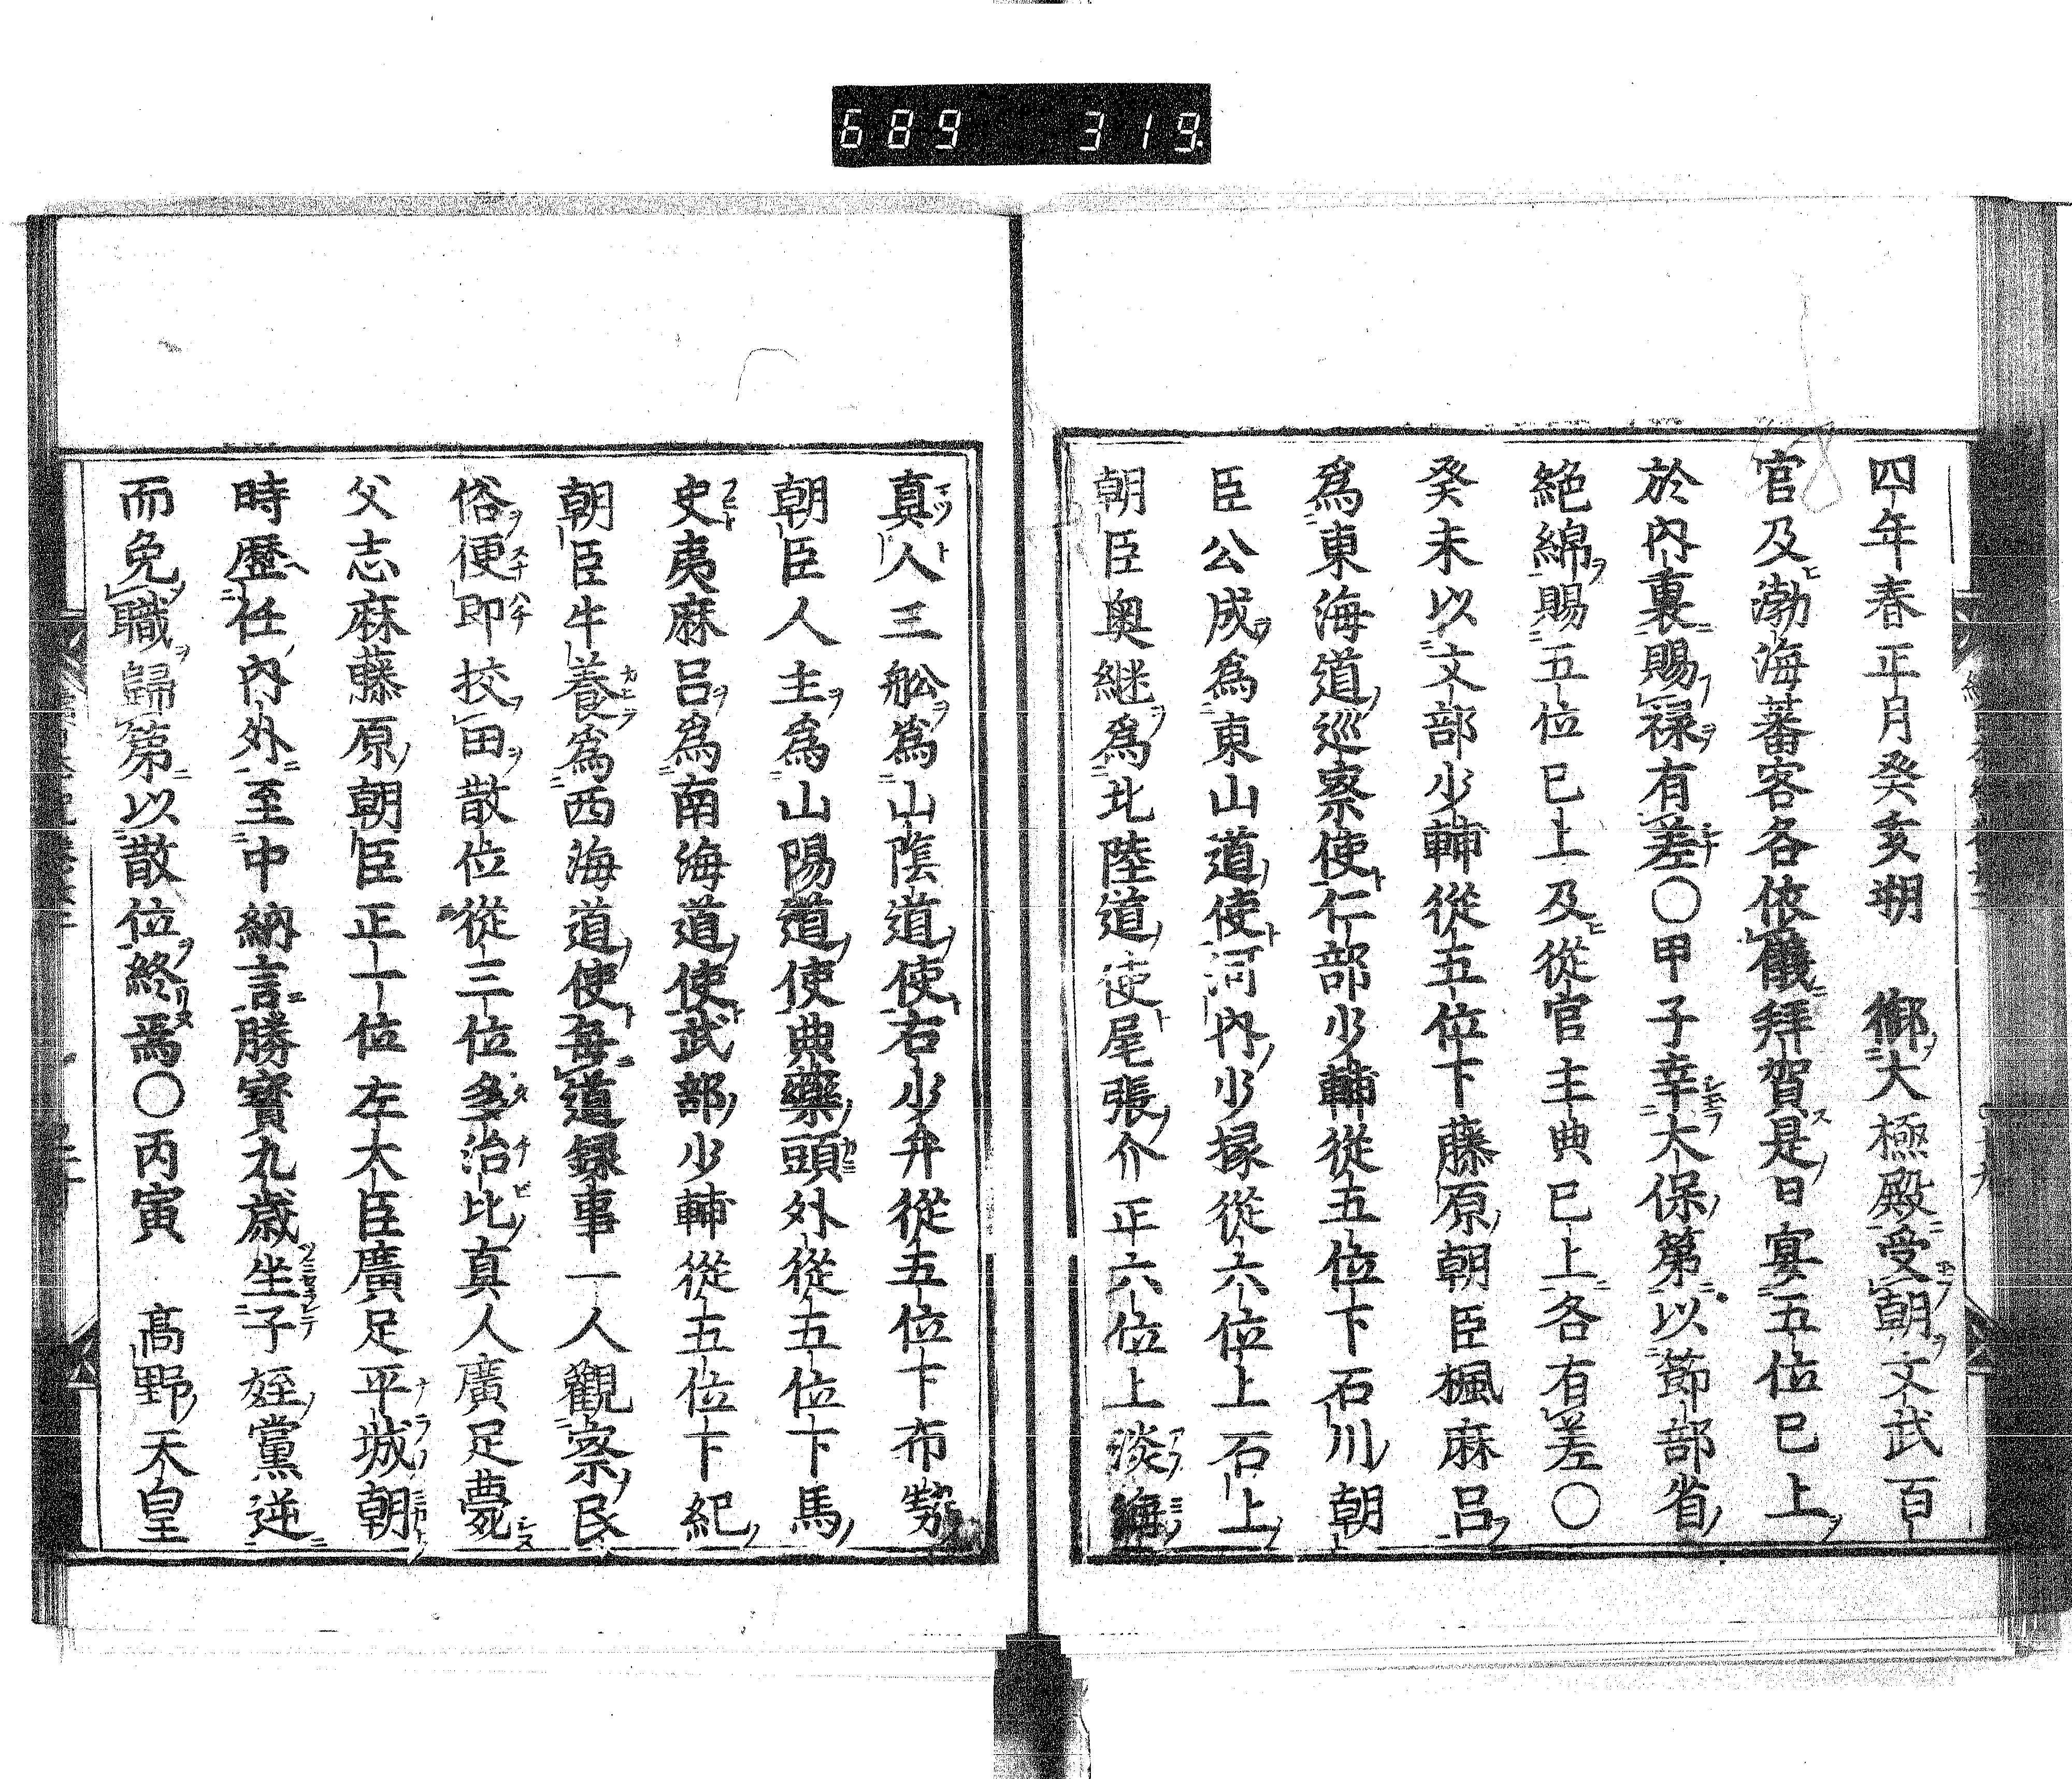 689 319
四年春正月癸亥朔　御大極殿受朝文武百
官及渤海蕃客各依儀拜賀是日宴五位已上
於內裏賜祿有差〇甲子幸太保第以節部省
絁綿賜五位已上及從官主典已上各有差〇
癸未以文部少輔從五位下藤原朝臣楓麻呂
爲東海道巡察使仁部少輔從五位下石川朝
臣公成爲東山道使河內少掾從六位上石上
朝臣奧継爲北陸道使尾張介正六位上淡海
真人三舩爲山陰道使右少弁從五位下布勢
朝臣人主爲山陽道使典藥頭外從五位下馬
史夷麻呂爲南海道使武部少輔從五位下紀
朝臣牛養爲西海道使每道録事一人觀察民
俗便即挍田散位從三位多治比真人廣足薨
父志麻藤原朝臣正一位左大臣廣足平城朝
時歷任內外至中納言勝寶九歲坐子姪黨逆
而免職歸第以散位終焉〇丙寅　髙野天皇